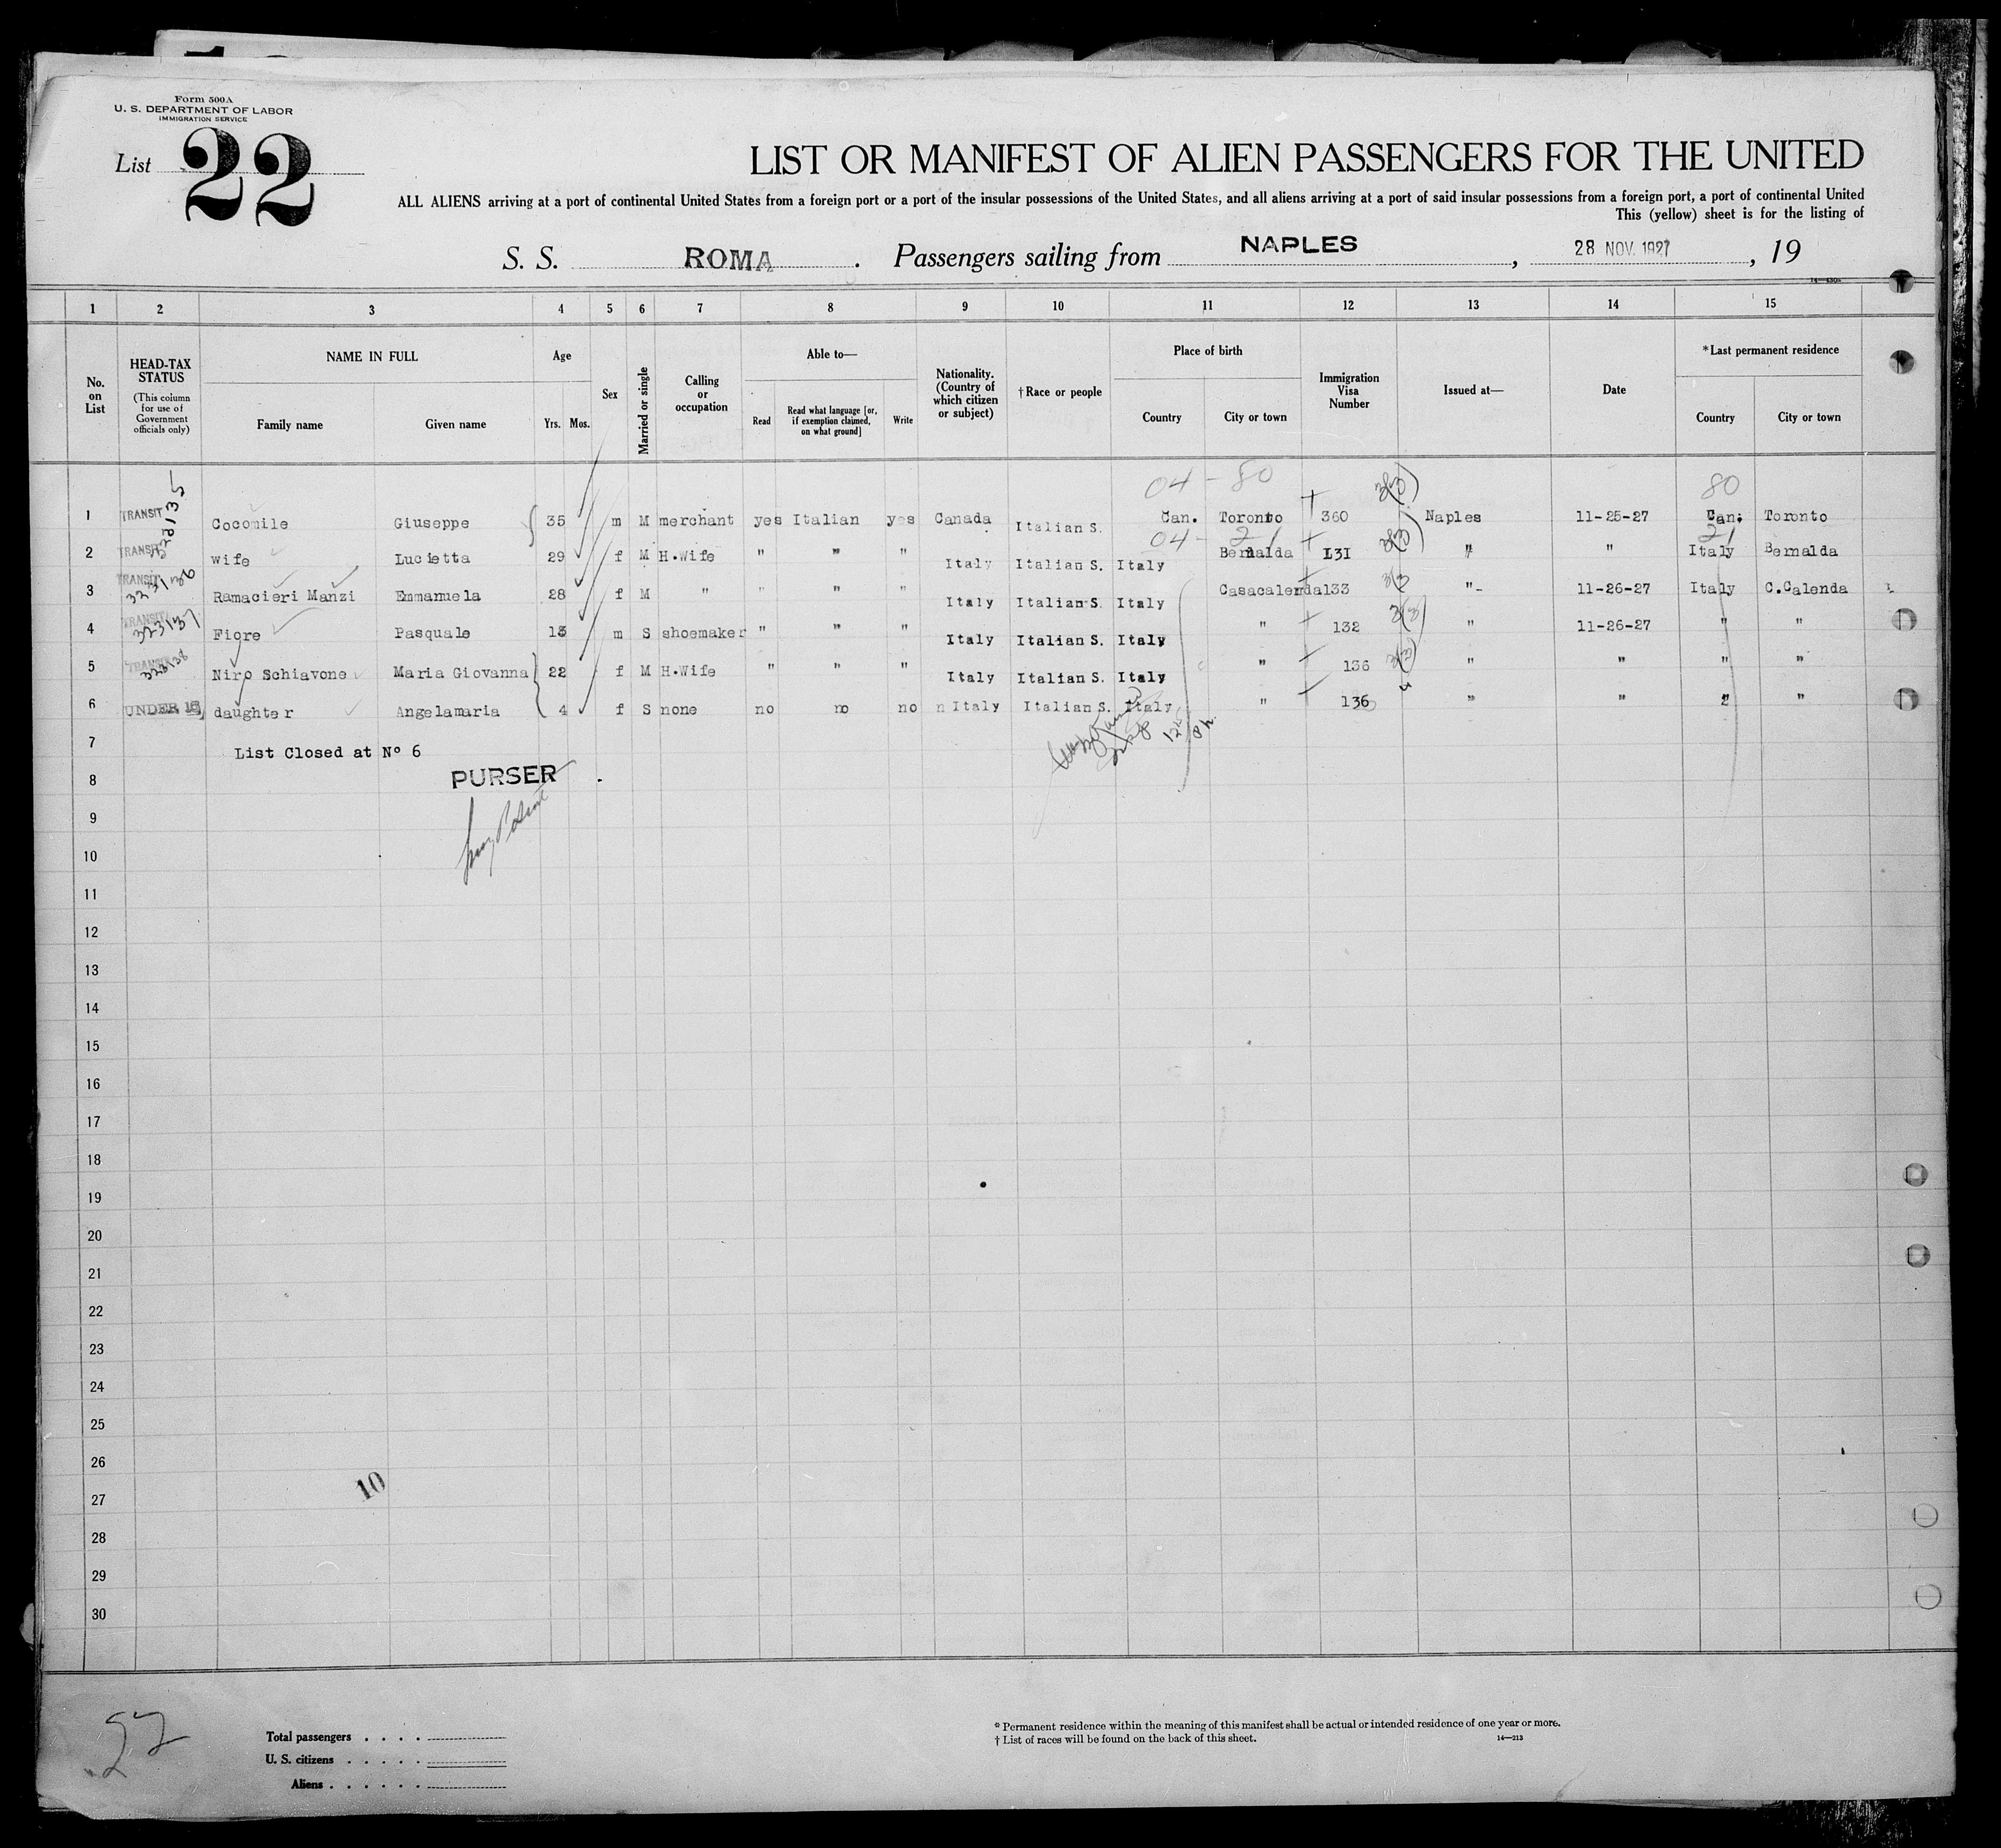 Form 500A
U. S. DEPARTMENT OF LABOR
IMMIGRATION SERVICE
List 22
LIST OR MANIFEST OF ALIEN PASSENGERS FOR THE UNITED
ALL ALIENS arriving at a port of continental United States from a foreign port or a port of the insular possessions of the United States, and all aliens arriving at a port of said insular possessions from a foreign port, a port of continental United
This (yellow) sheet is for the listing of
S. S. ROMA. Passengers sailing from NAPLES, 28 NOV. 1927, 19
1 2 3 4 5 6 7 8 9 10 11 12 13 14 15
No. on List
HEAD-TAX STATUS
(This column for use of Government officials only)
NAME IN FULL
Family name Given name
Age
Yrs. Mos.
Sex
Married or single
Calling or occupation
Able to—
Read
Read what language [or, if exemption claimed, on what ground]
Write
Nationality. (Country of which citizen or subject)
†Race or people
Place of birth
Country City or town
Immigration Visa Number
Issued at—
Date
*Last permanent residence
Country City or town
04 - 80 80
1 TRANSIT 323135 Cocomile Giuseppe 35 m M merchant yes Italian yes Canada Italian S. Can. Toronto 360 Naples 11-25-27 Can. Toronto
04 - 21 21
2 TRANSIT wife Lucietta 29 f M H.Wife " " " Italy Italian S. Italy Bernalda 131 " " Italy Bernalda
3 TRANSIT 323136 Ramacieri Manzi Emmanuela 28 f M " " " " Italy Italian S. Italy Casacalenda 133 " 11-26-27 Italy C.Calenda
4 TRANSIT 323137 Fiore Pasquale 13 m S shoemaker " " " Italy Italian S. Italy " 132 " 11-26-27 " "
5 TRANSIT 323138 Niro Schiavone Maria Giovanna 22 f M H.Wife " " " Italy Italian S. Italy " 136 " " " "
6 UNDER 16 daughter Angelamaria 4 f S none no no no n Italy Italian S. Italy " 136 " " " "
7 List Closed at Nº 6
8 PURSER
9
10
11
12
13
14
15
16
17
18
19
20
21
22
23
24
25
26
10
27
28
29
30
Total passengers . . . .
U. S. citizens . . . . .
Aliens . . . . . .
* Permanent residence within the meaning of this manifest shall be actual or intended residence of one year or more.
† List of races will be found on the back of this sheet.
14—213